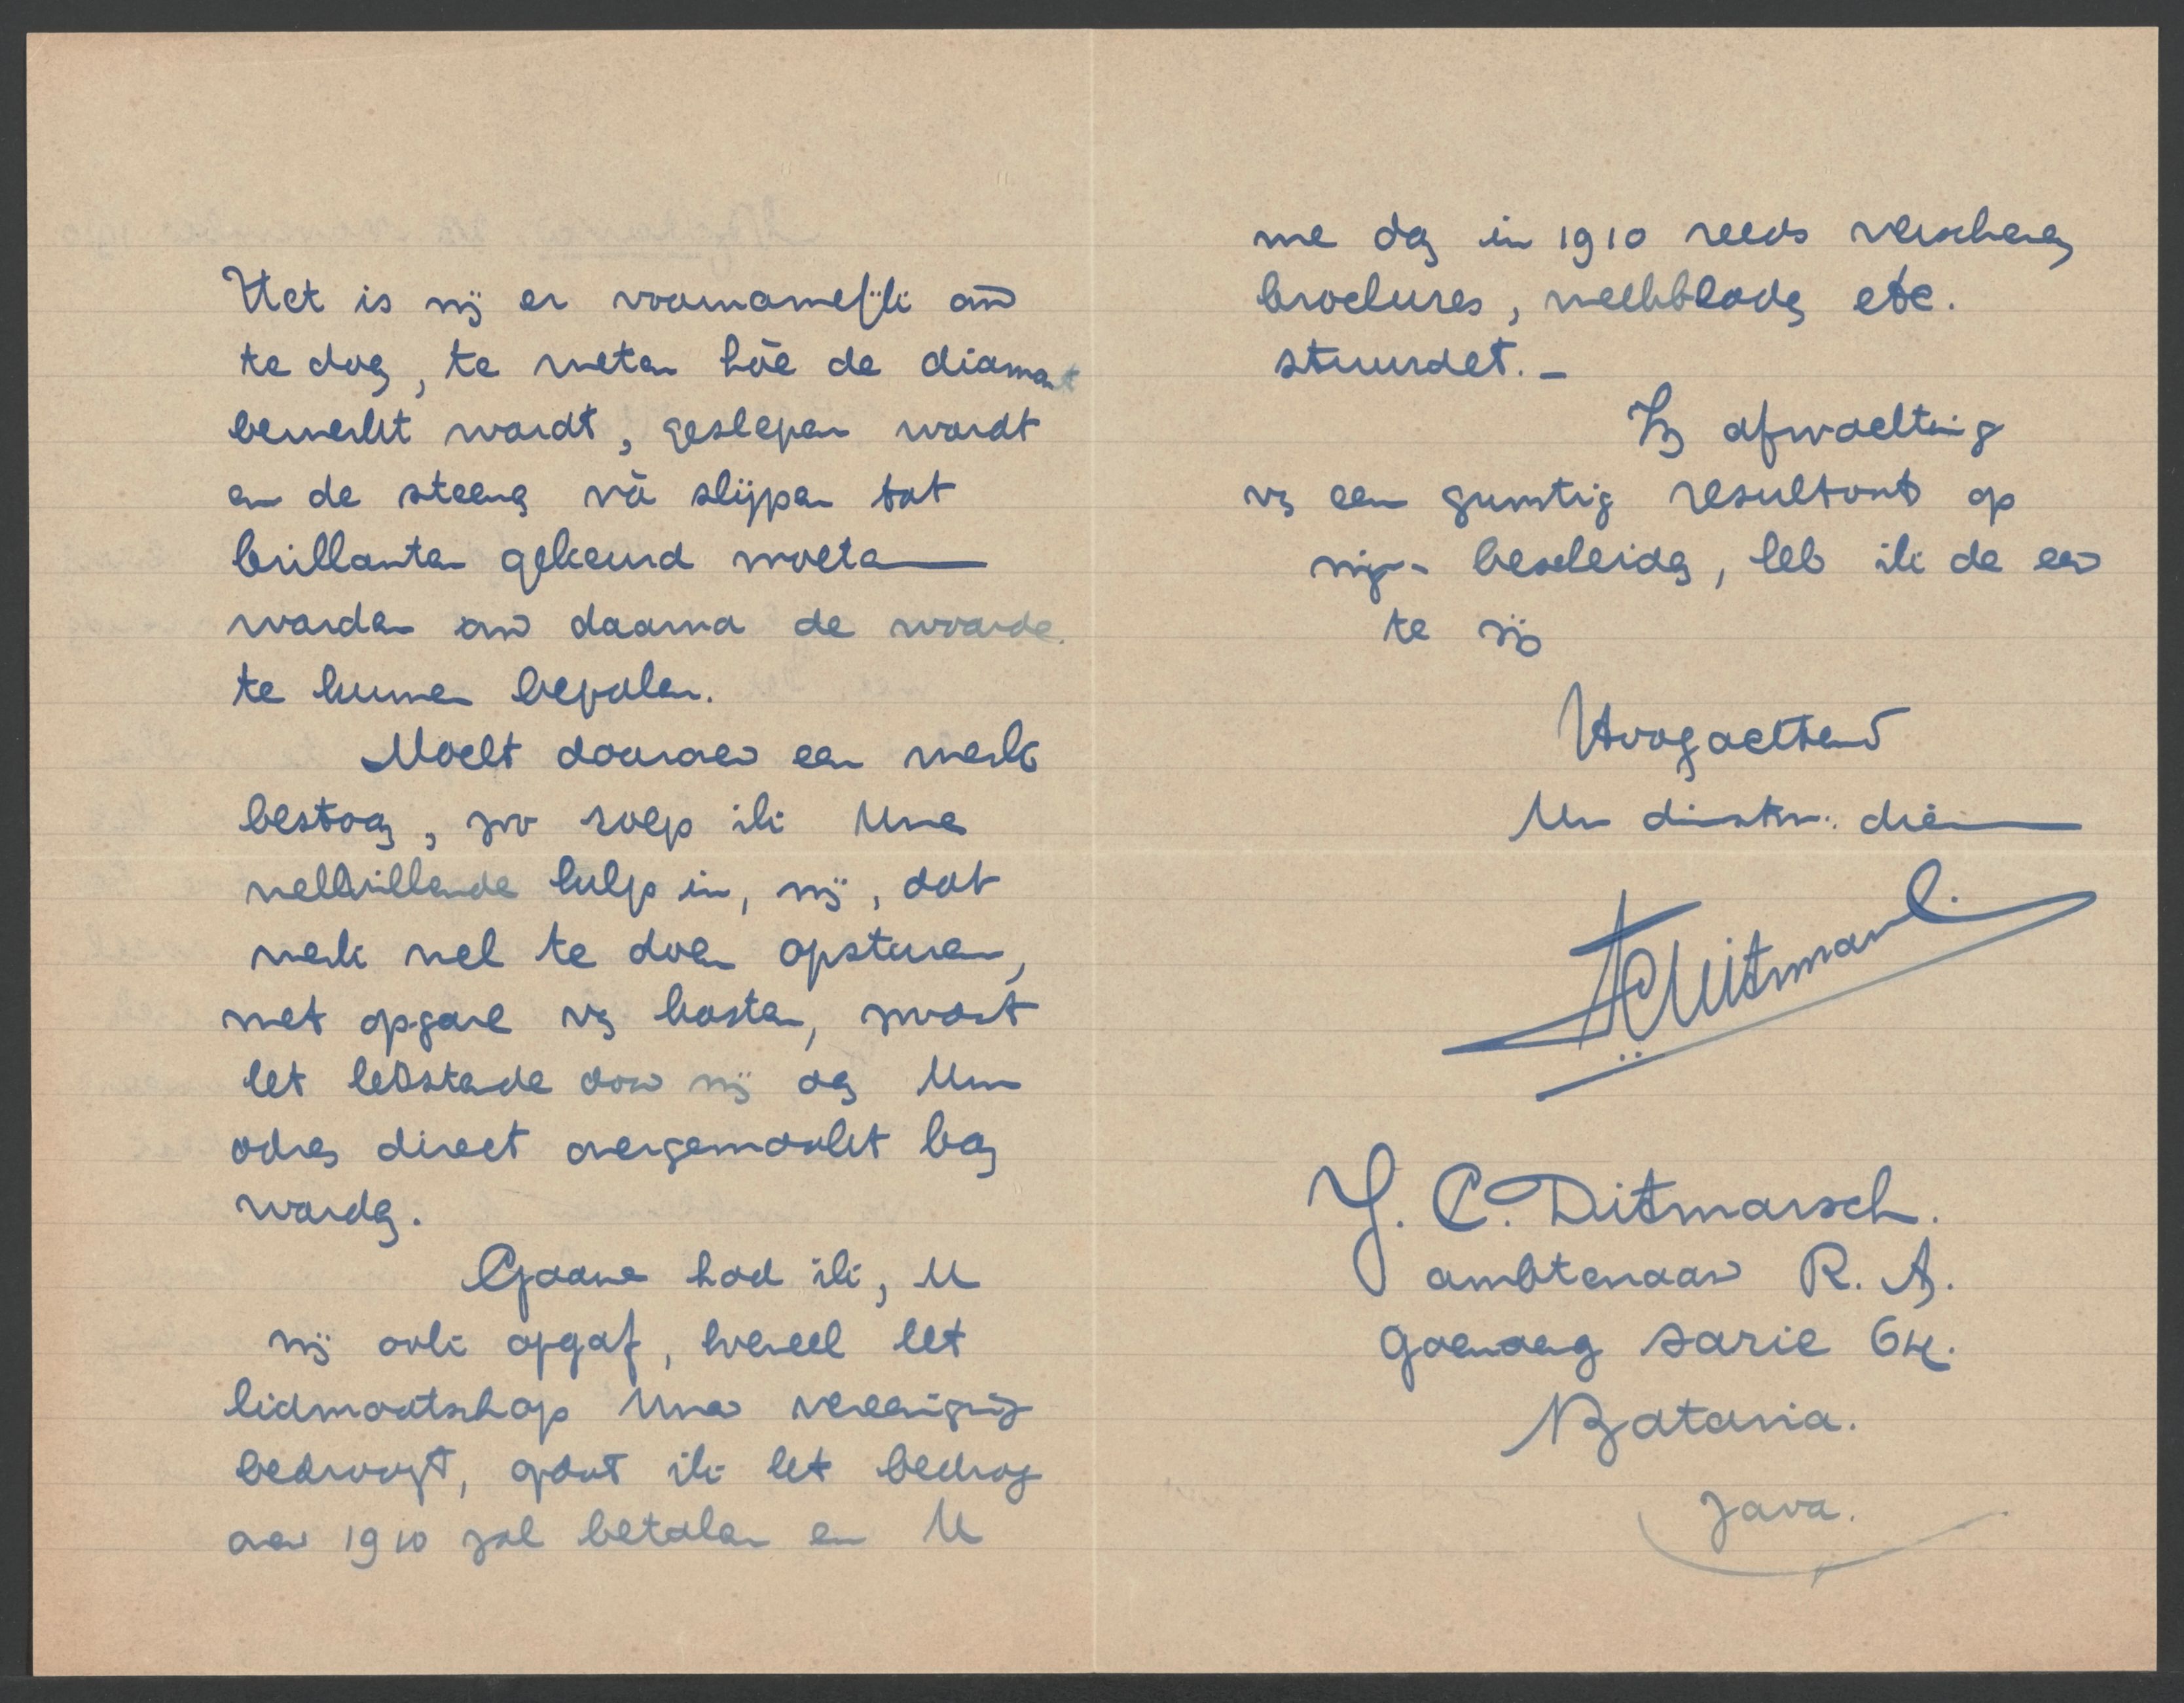 Het is mij er voornamelijk om
te doen, te weten hoe de diamant
bewerkt wordt, geslepen wordt
en de steenen vóór slijpen tot
brillanten gekeurd moeten
worden om daarna de waarde
te kunnen bepalen.
Mocht daarover een werk
bestaan, zoo roep ik Uwe
welwillende hulp in, mij, dat
werk wel te doen opsturen,
met opgave van kosten, zoodat
het bedrag door mij aan Uw
adres direct overgemaakt kan
worden.
Gaarne had ik, U
mij ook opgaf, hoeveel het
lidmaatschap Uwer vereeniging
bedraagt, zoodat ik het bedrag
over 1910 zal betalen en U
me dan in 1910 reeds verschenen
brochures, weekbladen etc.
stuurdet. —
In afwachting
van een gunstig resultaat op
mijn bescheiden, heb ik de eer
te zijn
Hoogachtend
Uw dienstw. dien
JCDitmarsch
J. C. Ditmarsch.
ambtenaar R. A.
Goenoeng Sarie 64.
Batavia.
Java.